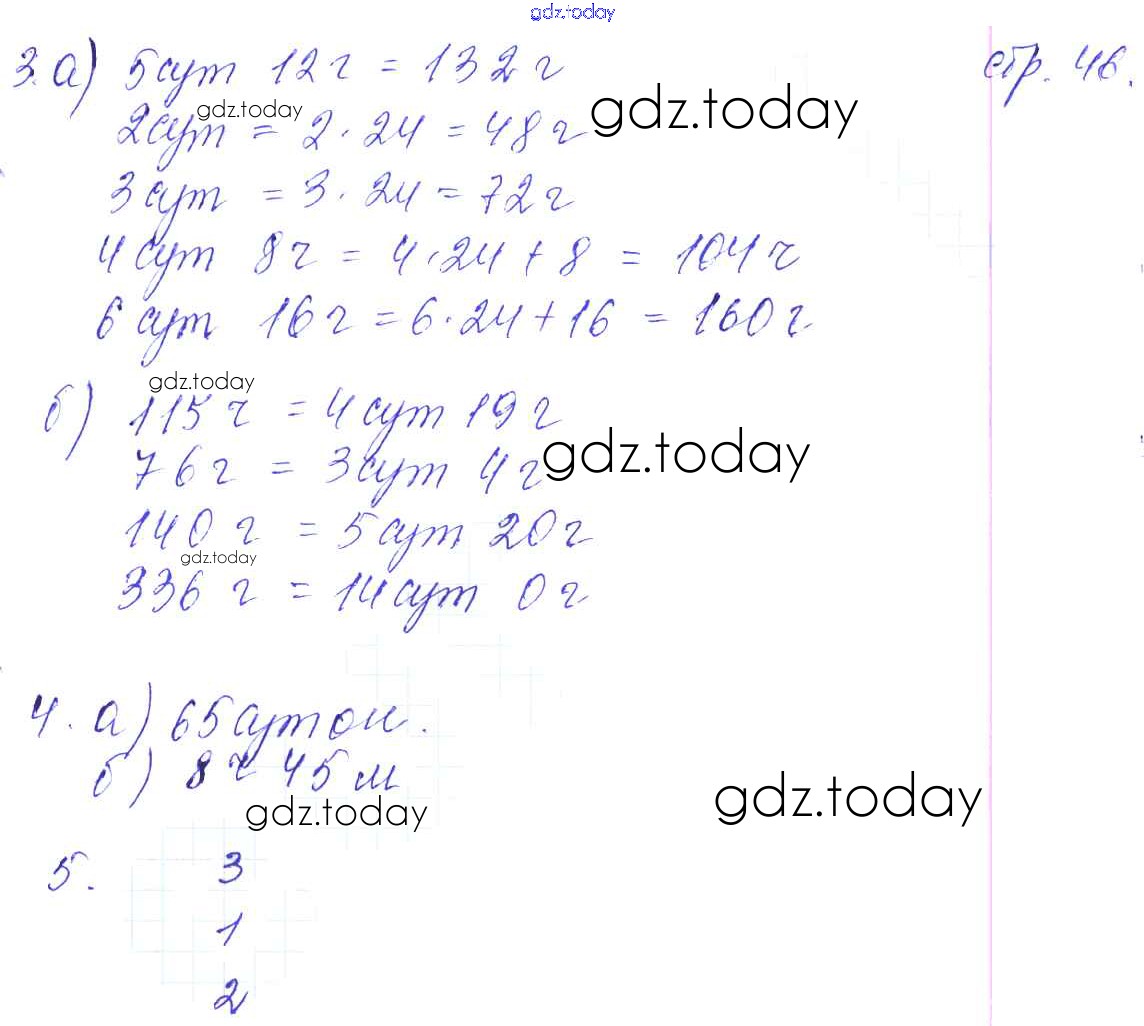 gdz.today
3. а) 5 сут 12 ч = 132 ч
стр. 46.
gdz.today
gdz.today
2 сут = 2 · 24 = 48 ч
3 сут = 3 · 24 = 72 ч
4 сут 8 ч = 4 · 24 + 8 = 104 ч
6 сут 16 ч = 6 · 24 + 16 = 160 ч
gdz.today
б) 115 ч = 4 сут 19 ч
gdz.today
76 ч = 3 сут 4 ч
140 ч = 5 сут 20 ч
gdz.today
336 ч = 14 сут 0 ч
4. а) 65 суток.
б) 8 ч 45 м
gdz.today
gdz.today
5. 3
1
2